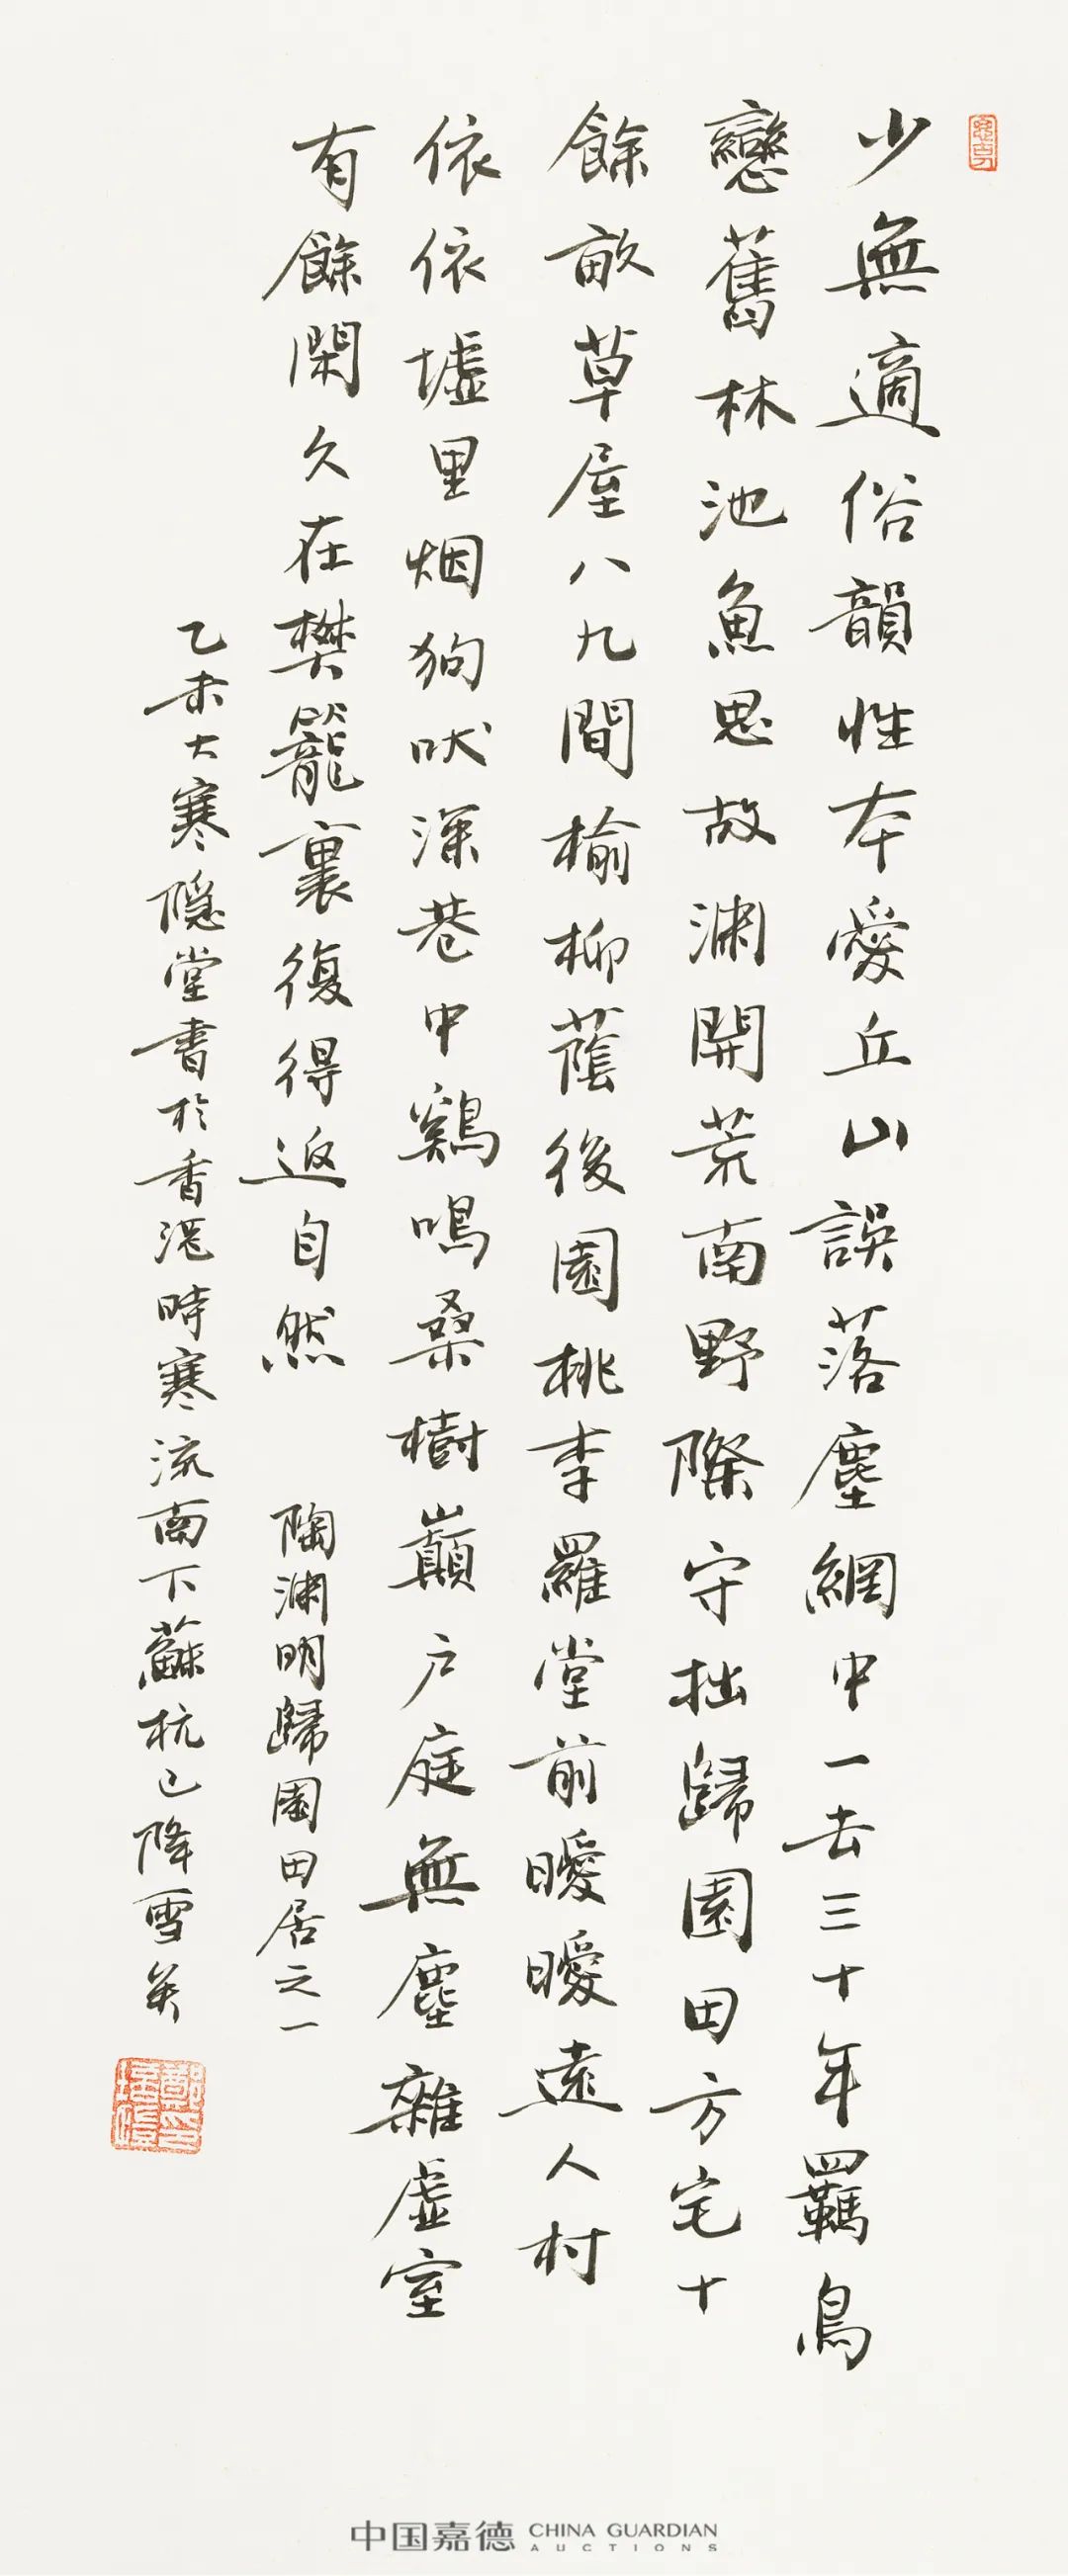 少無適俗韻性本愛丘山誤落塵網中一去三十年羈鳥
戀舊林池魚思故淵開荒南野際守拙歸園田方宅十
餘畝草屋八九間榆柳蔭後園桃李羅堂前曖曖遠人村
依依墟里烟狗吠深巷中鷄鳴桑樹巔户庭無塵雜虛室
有餘閑久在樊籠裏復得返自然 陶淵明歸園田居之一
乙未大寒隱堂書於香港時寒流南下蘇杭已降雪矣
中国嘉德 CHINA GUARDIAN
AUCTIONS